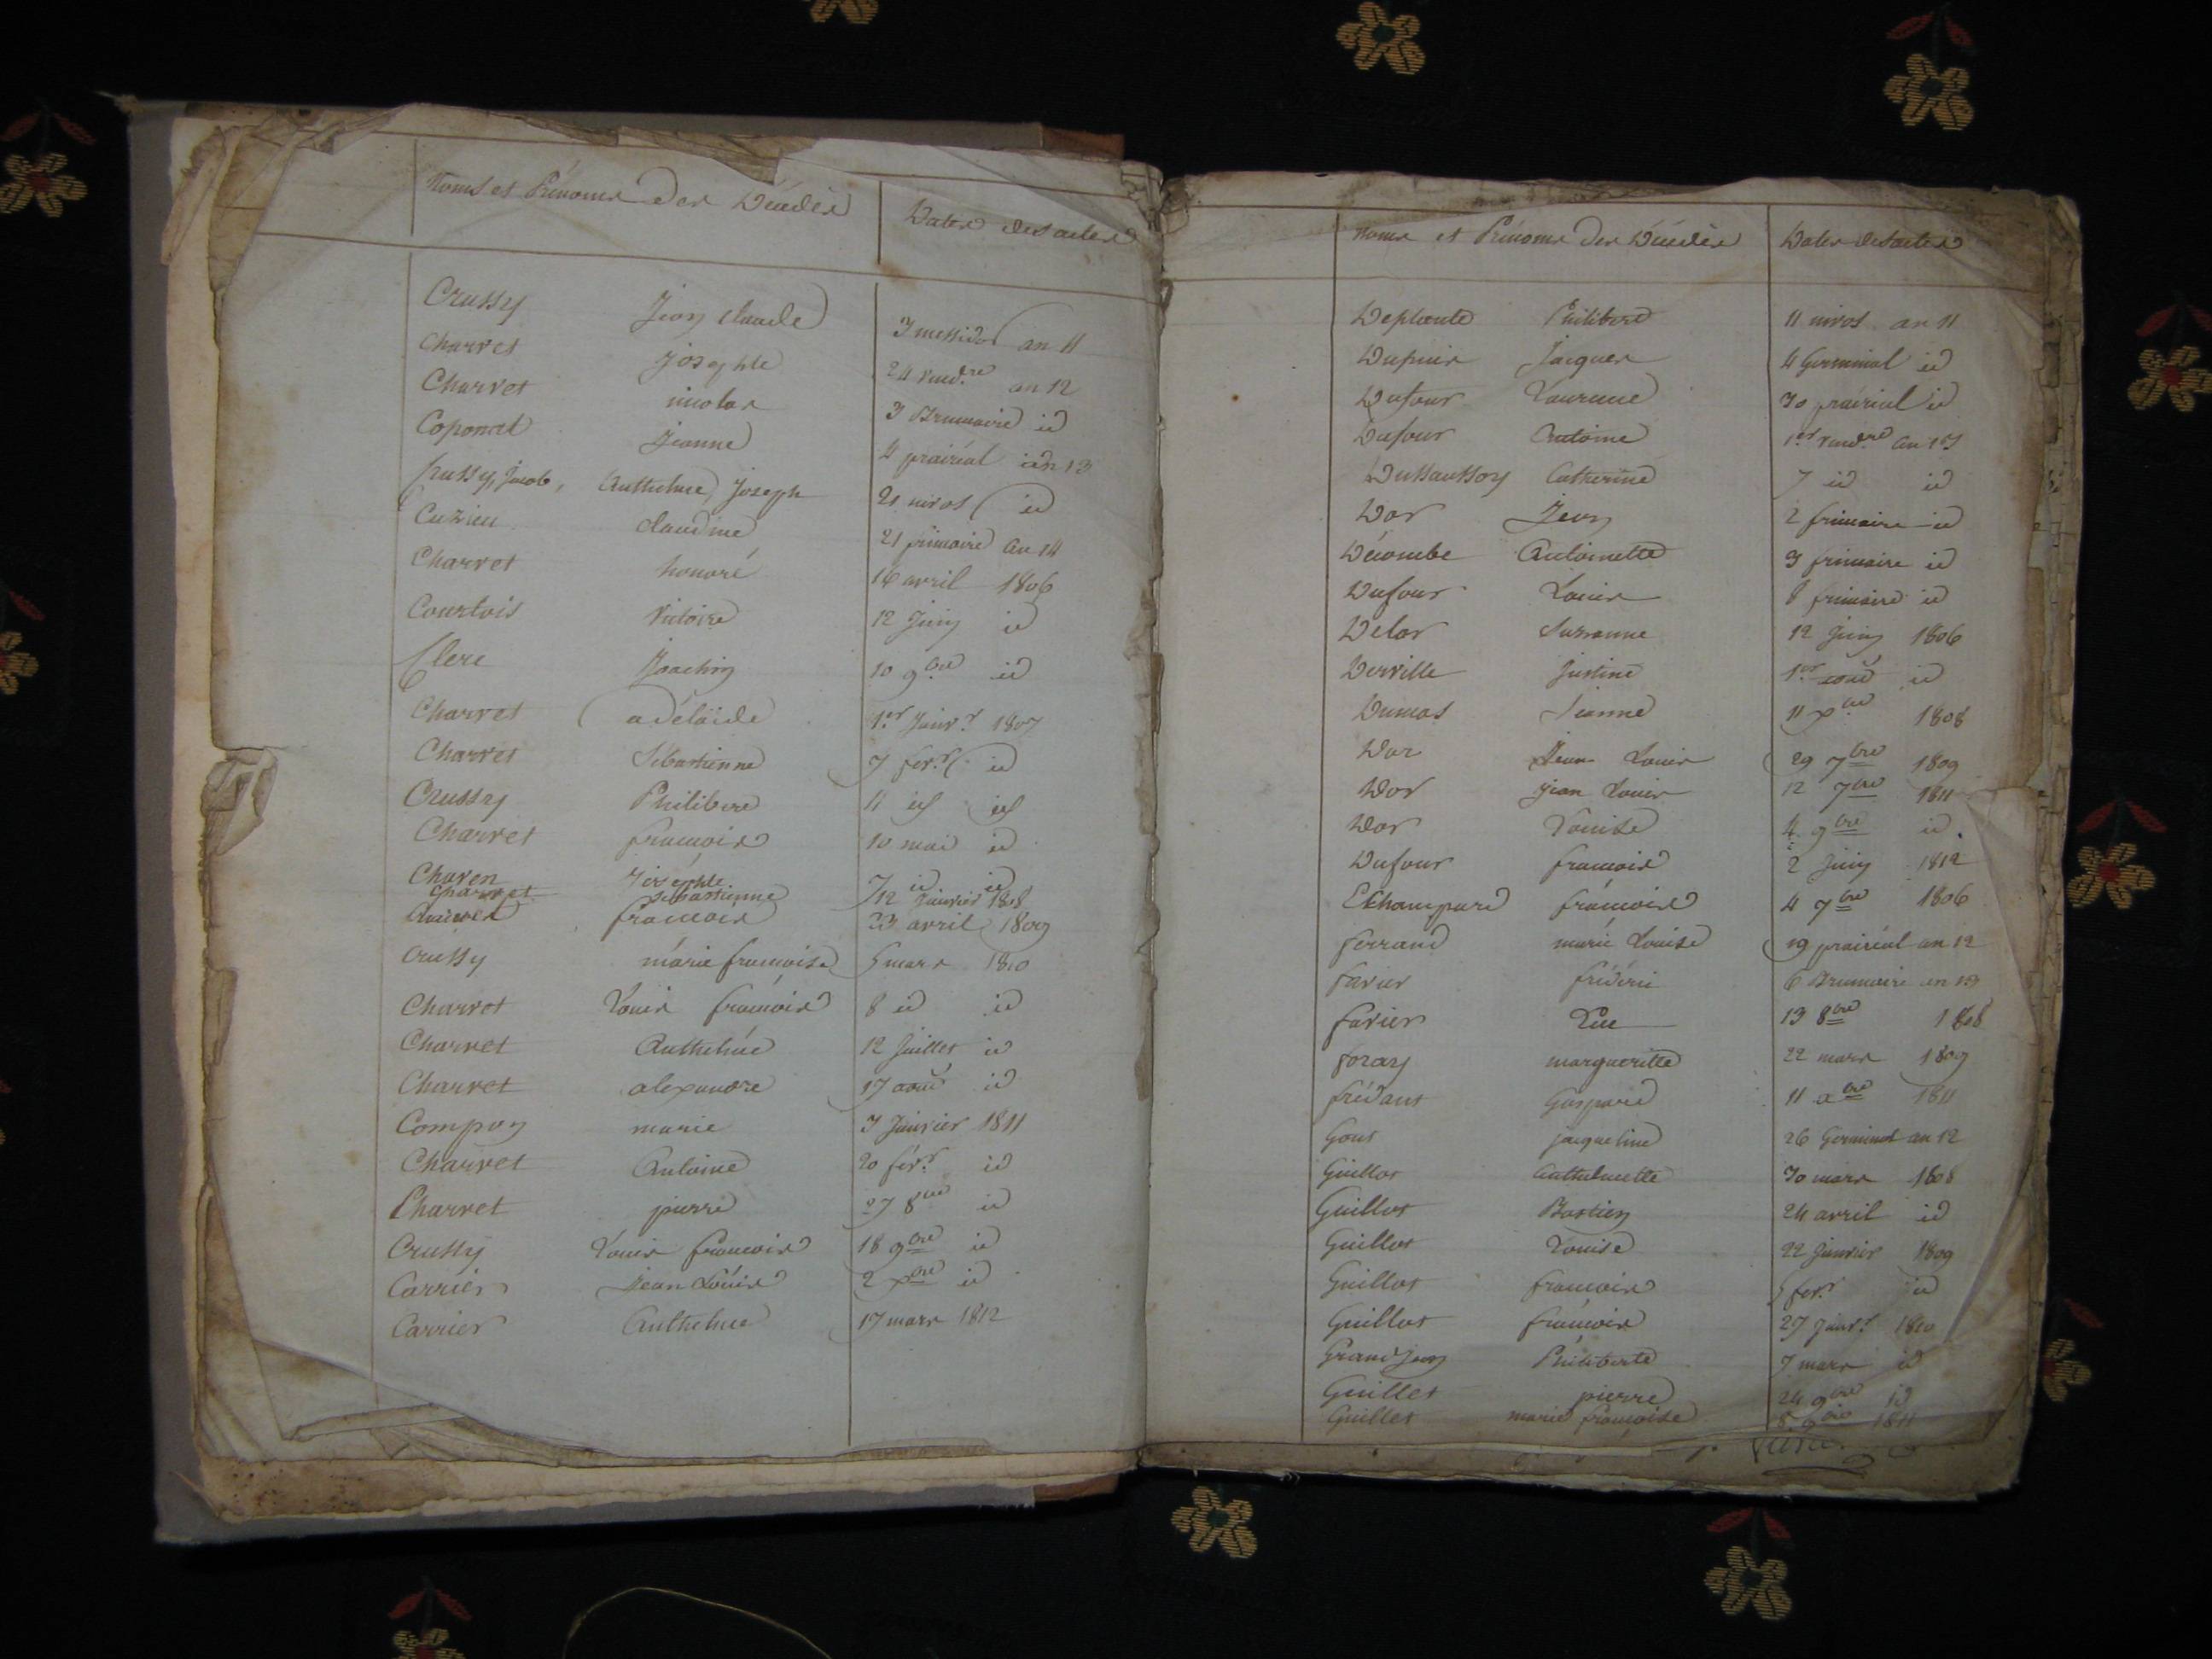 Noms et Prénoms des Décédés Dates des actes
Crussy Jean claude 3 messidor an 11
Charvet josephte 24 vend.re an 12
Charvet nicolas 3 Brumaire id
Coponat Jeanne 4 prairéal id an 13
Crussy, Jacob, Anthelme Joseph 21 nivos id
Cuzieu claudine 21 frimaire an 14
Charvet honoré 16 avril 1806
Courtois Victoire 12 Juin id
Clerc Joachin 10 9.bre id
Charvet adélaïde 1.er Janv.r 1807
Charvet Sébastienne 7 fev.r id
Crussy Philibert 11 id id
Charvet francois 10 mai id
Charen Joséphte 7 id id
Charvet sébastienne 12 Janvier 1808
Charvet francois 23 avril 1809
Crussy márie francoise 5 mars 1810
Charvet Louis francois 8 id id
Charvet Anthelme 12 Juillet id
Charvet alexandre 17 aout id
Compoy marie 3 Janvier 1811
Charvet Antoine 20 fév.r id
Charvet pierre 27 8bre id
Crussy Louis francois 18 9bre id
Carrier Jean Louis 2 xbre id
Carrier Anthelme 17 mars 1812
Noms et Prénoms des Décédés Dates des actes
Deplante Philibert 11 nivos an 11
Dupuis Jacques 4 Germinal id
Dufour Laurence 30 prairial id
Dufour Antoine 1.er vend.re an 13
Dussaussoy Catherine 7 id id
Dor Jean 2 frimaire id
Décombe Antoinette 3 frimaire id
Dufour Louis 8 frimaire id
Delor Suzanne 12 Juin 1806
Derville Justine 1.er aout id
Dumas Jeanne 11 xbre 1808
Dor Jean Louis 29 7bre 1809
Dor jean Louis 12 7bre 1811
Dor Louise 4 9bre id
Dufour francois 2 Juin 1812
Echampard francois 4 7bre 1806
ferrand marie Louise 19 prairéal an 12
favier fréderic 6 Brumaire an 13
favier Luc 13 8bre 1808
foray margueritte 22 mars 1809
frédaut Gaspard 11 xbre 1811
Gout jacqueline 26 Germinal an 12
Guillot anthelmette 30 mars 1808
Guillot Bastien 24 avril id
Guillot Louise 22 janvier 1809
Guillot francois 5 fev.r id
Guillot francois 27 janv.r 1810
Grandjean Philiberte 7 mars id
Guillet pierre 24 9bre id
Guillet marie françoise 1811